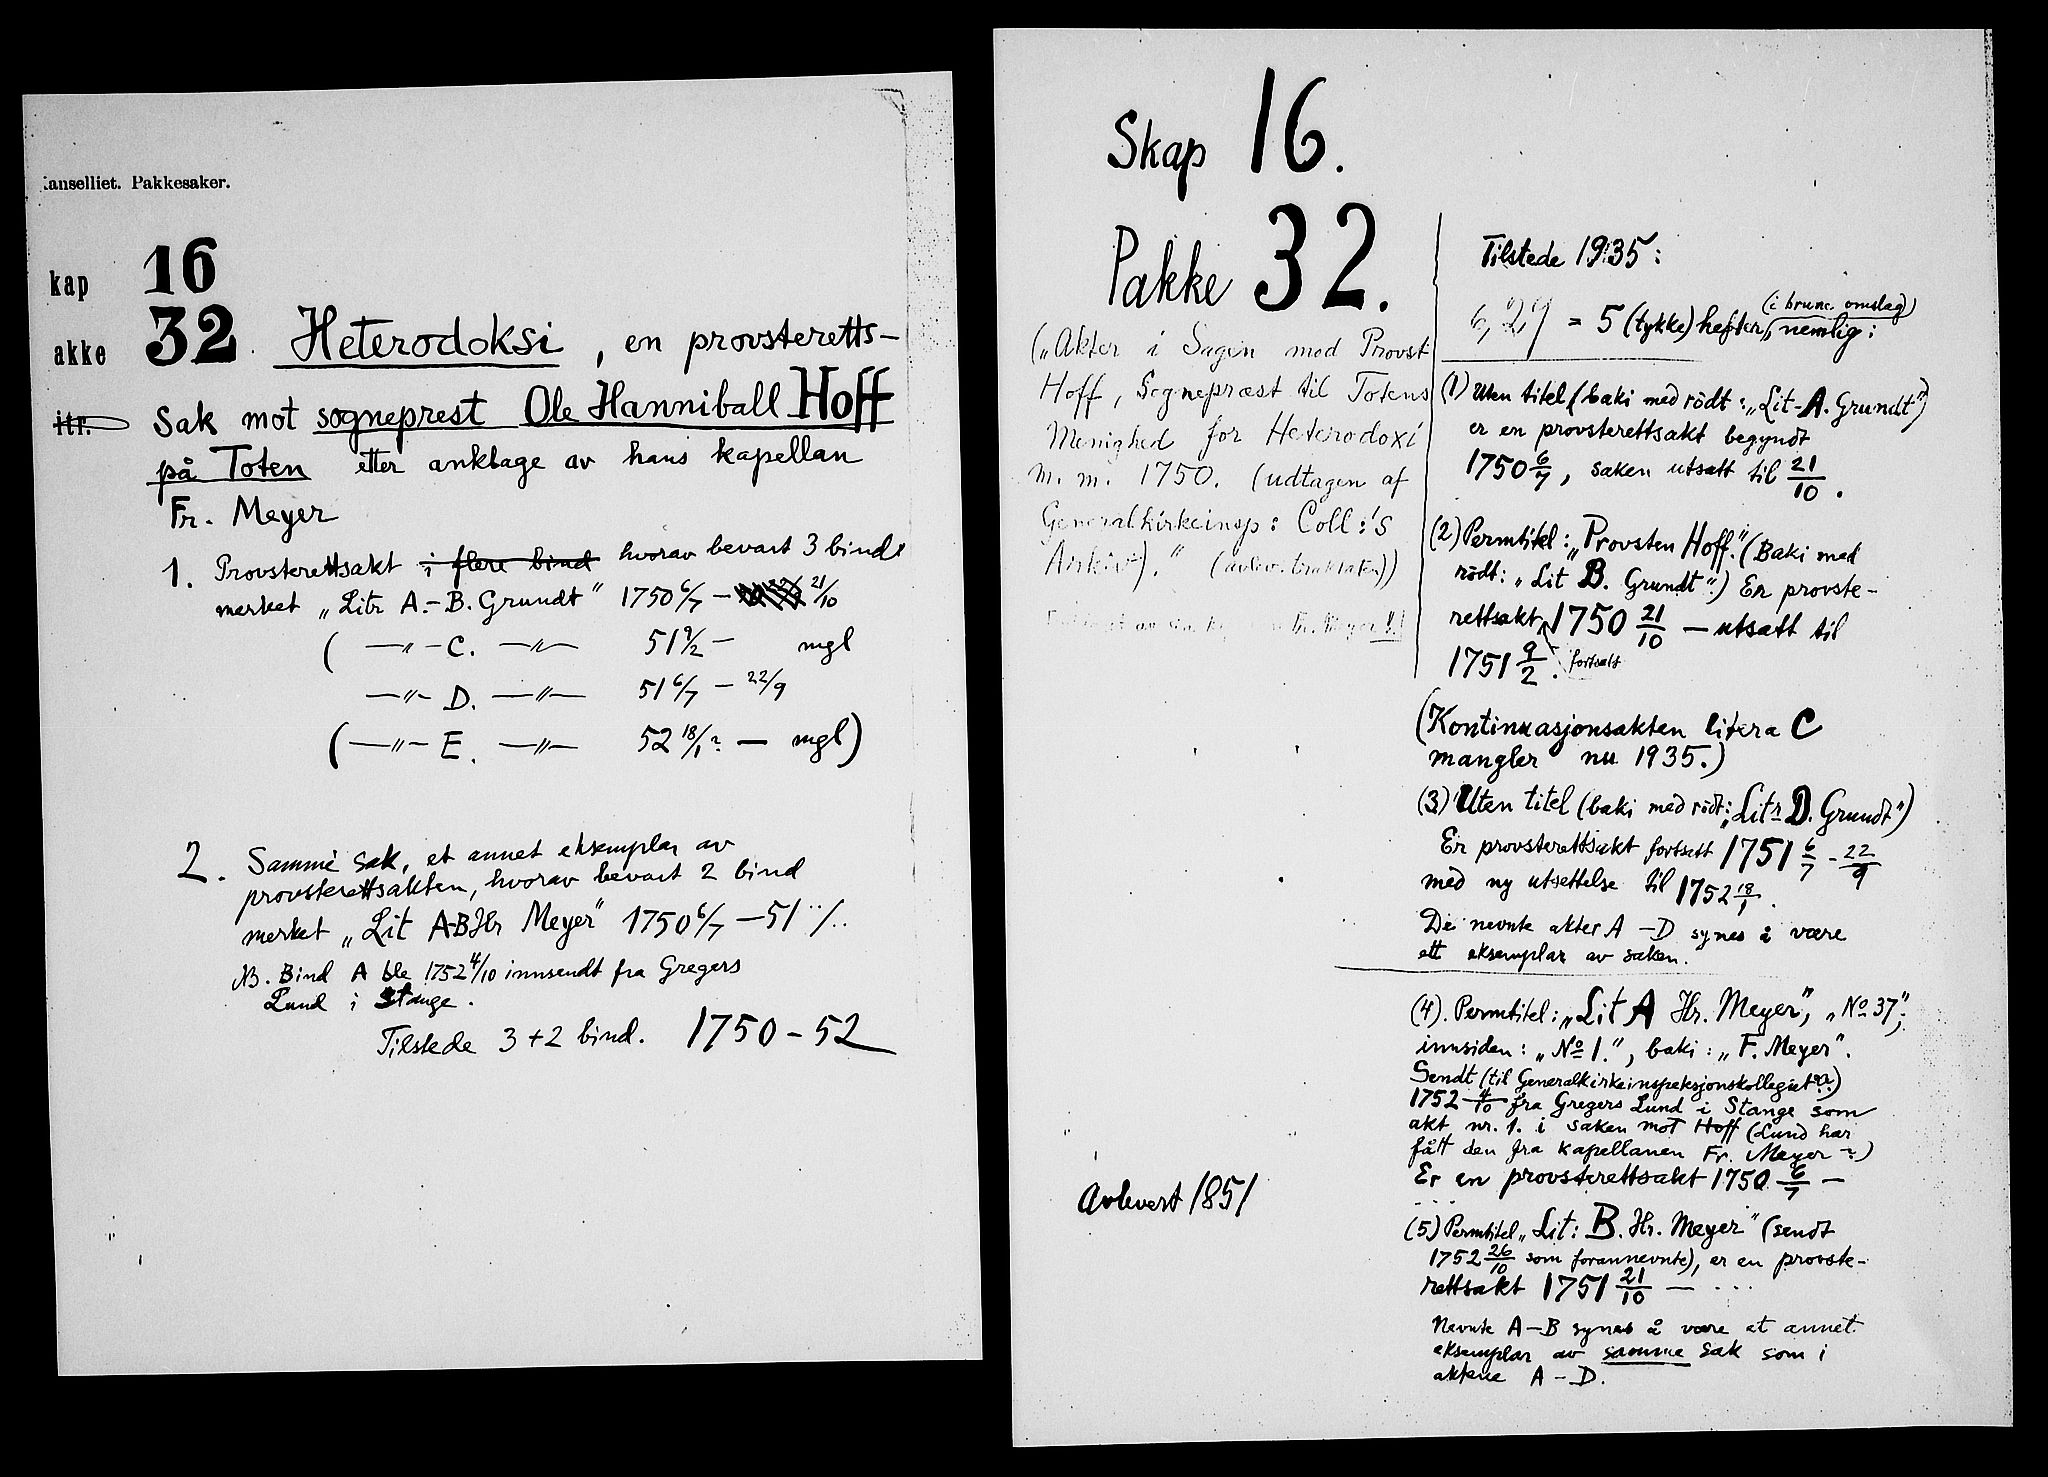 anselliet. Pakkesaker.
kap 16
akke 32 Heterodoksi, en provsteretts-
itr. Sak mot sogneprest Ole Hanniball Hoff
på Toten etter anklage av hans kapellan
Fr. Meyer
1. Provsterettsakt i flere bind hvorav bevart 3 bind
merket „Litr A.-B. Grundt" 1750 6/7 — 21/10
( —„— C. —„— 51 9/2 — mgl
—„— D. —„— 51 6/7 — 22/9
( —„— E. —„— 52 18/1? — mgl)
2. Samme sak, et annet eksemplar av
provsterettsakten, hvorav bevart 2 bind
merket „Lit A-B Hr Meyer" 1750 6/7 — 51 ../..
NB. Bind A ble 1752 4/10 innsendt fra Gregers
Lund i Stange.
Tilstede 3 + 2 bind. 1750 - 52
Skap 16.
Pakke 32.
(„Akter i Sagen mod Provst
Hoff, Sognepræst til Totens
Menighed for Heterodoxi
m. m. 1750. (udtagen af
Generalkirkeinsp: Coll:'s
Arkiv)." (avlev. traktaten))
Fr. Meyer
Avlevert 1851
Tilstede 1935:
= 5 (tykke) hefter (i brune omslag), nemlig:
(1) Uten titel (baki med rödt: „Lit. A. Grundt")
er en provsterettsakt begyndt
1750 6/7, saken utsatt til 21/10.
(2) Permtitel: „Provsten Hoff." (Baki med
rödt: „Lit B. Grundt".) Er provste-
rettsakt fortsatt 1750 21/10 — utsatt til
1751 9/2.
(Kontinuasjonsakten litera C
mangler nu 1935.)
(3) Uten titel (baki med rödt: „Litr D. Grundt")
Er provsterettsakt fortsatt 1751 6/7 - 22/9
med ny utsettelse til 1752 18/1.
De nevnte akter A - D synes å være
ett eksemplar av saken.
(4). Permtitel: „Lit A Hr. Meyer", „No 37";
innsiden: „No 1.", baki: „F. Meyer".
Sendt (til Generalkirkeinspeksjonskollegiet?)
1752 4/10 fra Gregers Lund i Stange som
akt nr. 1. i saken mot Hoff (Lund har
fått den fra kapellanen Fr. Meyer ?)
Er en provsterettsakt 1750 6/7 —
(5) Permtitel „Lit: B. Hr. Meyer" (sendt
1752 26/10 som forannevnte), er en provste-
rettsakt 1751 21/10 — ...
Nevnte A - B synes å være et annet
eksemplar av samme sak som i
aktene A - D.